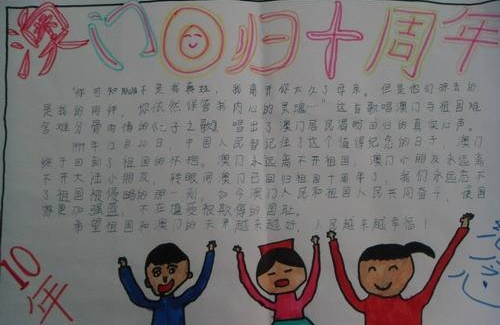 澳门回归十周年
"你可知Macau不是我真姓,我离开你太久了母亲。但是他们掠去的
是我的肉体,你依然保管我内心的灵魂…"这首歌唱澳门与祖国难
舍难分骨肉情的《七子之歌》唱出了澳门居民渴盼回归的真实心声。
1999年12月20日,中国人民都记住了这个值得纪念的日子,澳门
终于回到了祖国的怀抱。澳门永远离不开祖国,澳门小朋友永远离
不开大陆小朋友,转眼间澳门已回归祖国十周年了,我们永远忘不
了祖国被侵略的那一刻,如今澳门人民和祖国人民共同奋斗,使国
家更加强盛,不在遭受被欺侮的国耻。
希望祖国和澳门的未来越来越好,人民越来越幸福!
10
年